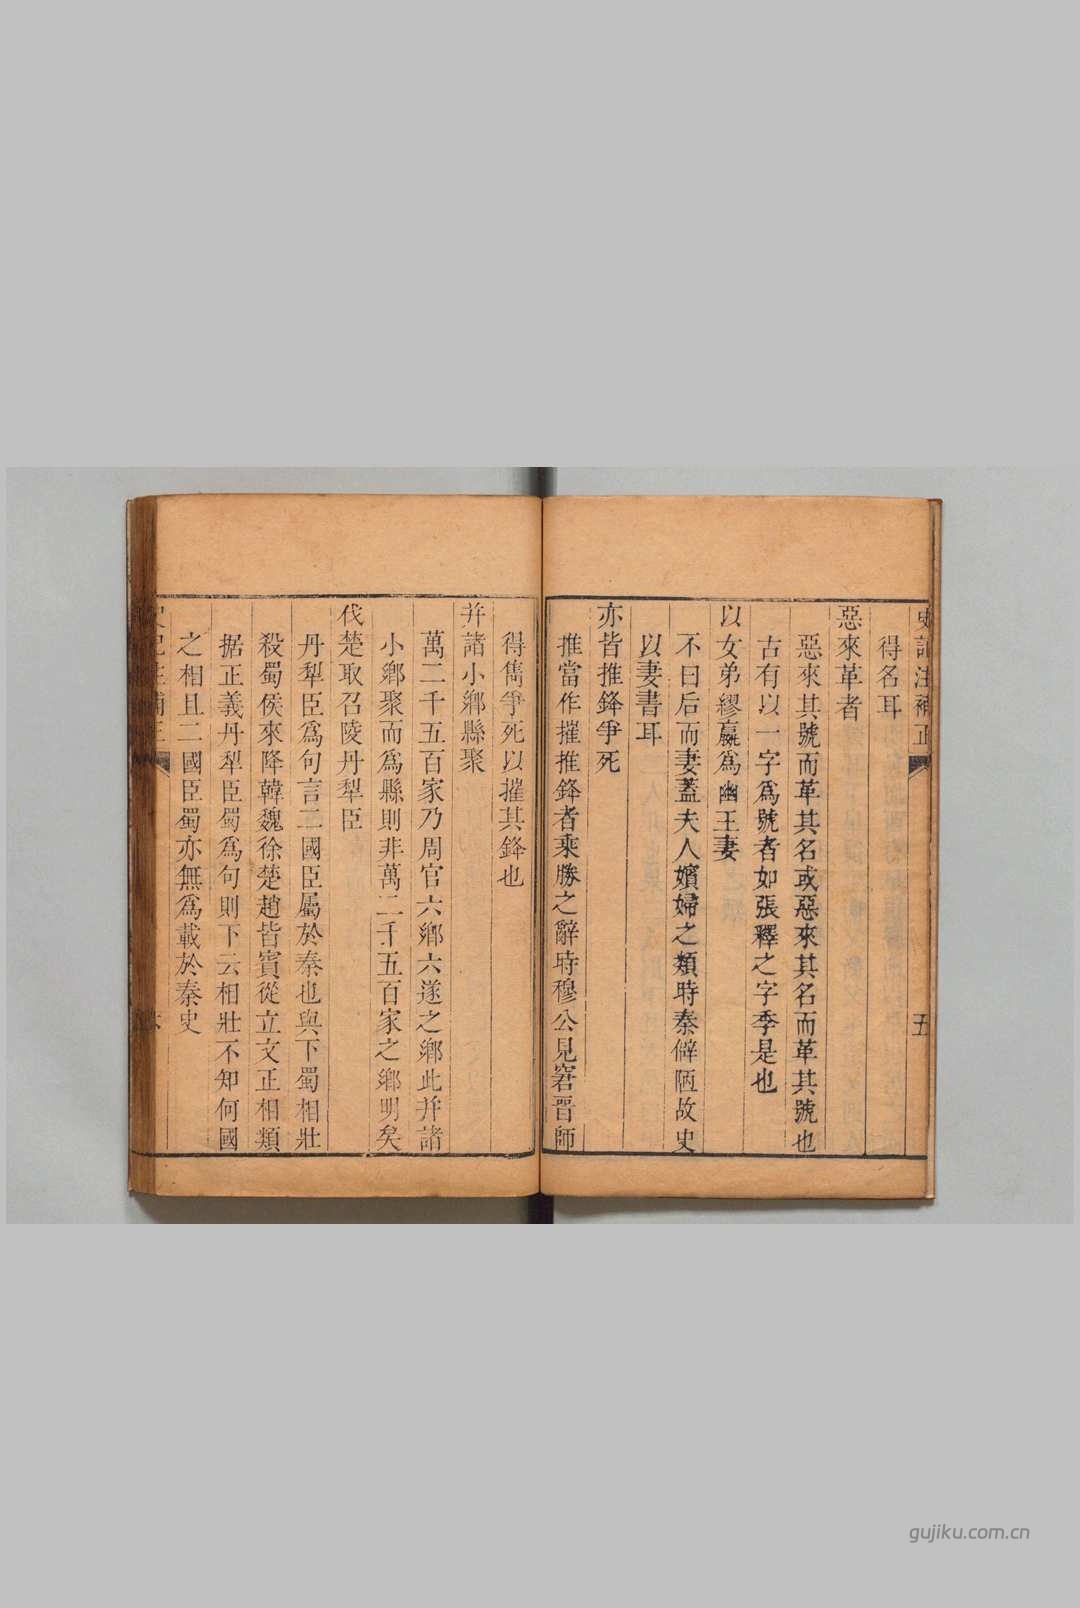 史記注補正
五
得名耳
惡來革者
惡來其號而革其名或惡來其名而革其號也
古有以一字爲號者如張釋之字季是也
以女弟繆嬴爲幽王妻
不曰后而妻蓋夫人嬪婦之類時秦僻陋故史
以妻書耳
亦皆推鋒爭死
推當作摧推鋒者乘勝之辭時穆公見窘晉師
得雋爭死以摧其鋒也
并諸小鄉縣聚
萬二千五百家乃周官六鄉六遂之鄉此并諸
小鄉聚而爲縣則非萬二千五百家之鄉明矣
伐楚取召陵丹犁臣
丹犁臣爲句言二國臣屬於秦也與下蜀相壯
殺蜀侯來降韓魏徐楚趙皆賓從立文正相類
据正義丹犁臣蜀爲句則下云相壯不知何國
之相且二國臣蜀亦無爲載於秦史
史記注補正
gujiku.com.cn